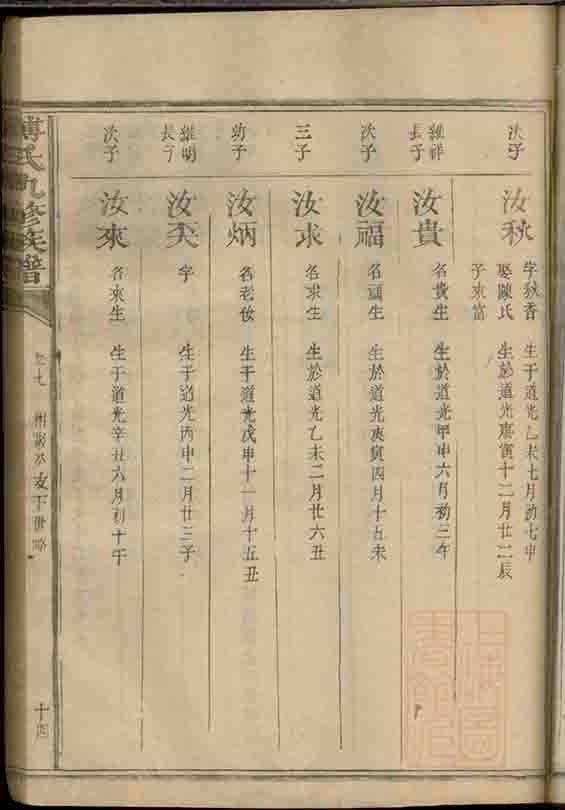 次子
汝秋
字秋香 生于道光乙未七月初七申
娶陳氏 生於道光庚寅十二月廿二辰
子來富
維祥
長子
汝貴
名貴生 生於道光甲申六月初三午
次子
汝福
名福生 生於道光庚寅四月十五未
三子
汝求
名求生 生於道光乙未二月廿六丑
幼子
汝炳
名老伙 生于道光戊申十一月十五丑
維明
長子
汝天
字 生于道光丙申二月廿三子
次子
汝來
名來生 生于道光辛丑六月初十午
傅氏九修族譜
卷七
公支下世略
十四
上海圖書館藏